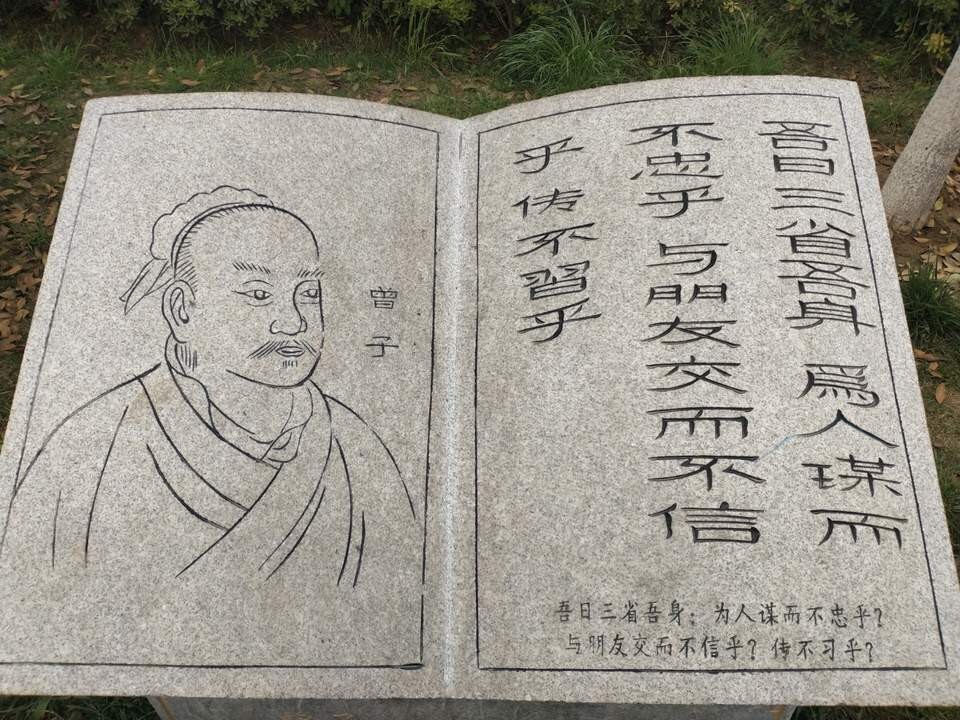 曾子
吾日三省吾身 為人谋而
不忠乎 与朋友交而不信
乎 传不習乎
吾日三省吾身：为人谋而不忠乎？
与朋友交而不信乎？传不习乎？